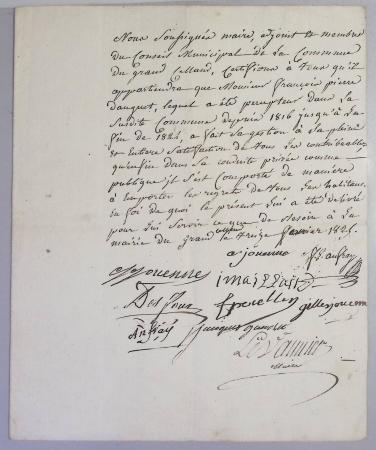 Nous Soussignés maire, adjoint et membres
du Conseil Municipal de la Commune
du grand Celland, Certifions à Tous qu'il
appartiendra que Monsieur françois pierre
dauguet, lequel a été percepteur dans la
susdite Commune depuis 1816 jusqu'à la
fin de 1824, a fait sa gestion à la pleine
et Entière Satisfaction de tous les contribuables
qu'enfin dans sa conduite privée comme
publique il s'est Comporté de manière
à Emporter les regrets de Tous les habitans,
En foi de quoi le présent lui a été délivré
pour lui servir ce que de raison à la
mairie du Grand Celland le Treize fevrier 1825.
ajouenne
jouenne
Des four
gillesjouenne
jacques
maire